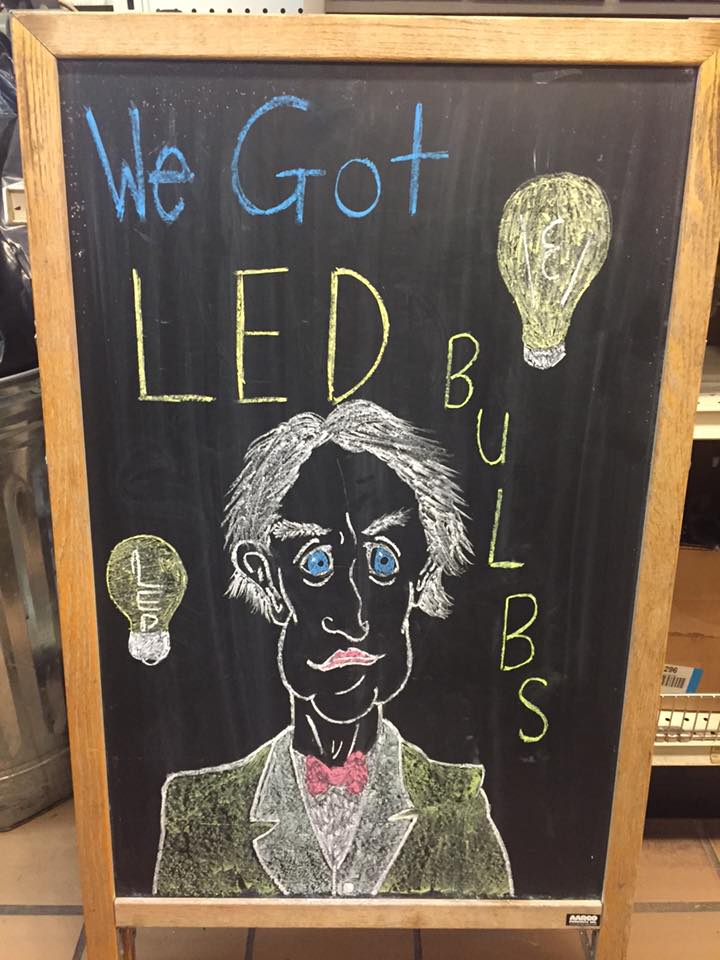 We Got
LED
BULBS
LED
296
AARCO